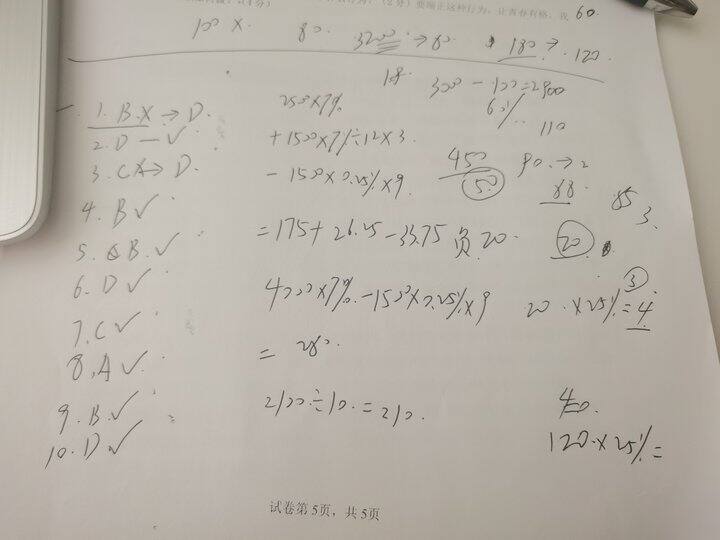 (2分)要端正这种行为,让青春有格,我 60.
100 X. 80. 3200 → 80 180 → 120
18 300 - 100 = 2900
60% 110
1. B. X → D.
2. D — √
3. C X → D.
4. B √
5. B. √
6. D √
7. C √
8. A √
9. B. √
10. D √
2500×7%
+1500×7%÷12×3
-1500×0.25%×9
=175+26.25-33.75
450
50
90. → 2
88
85 3.
20
4000×7%-1500×0.25%×9
= 280.
3
20 × 25% = 4
2100÷10.=210.
40.
120×25%=
试卷第5页,共5页